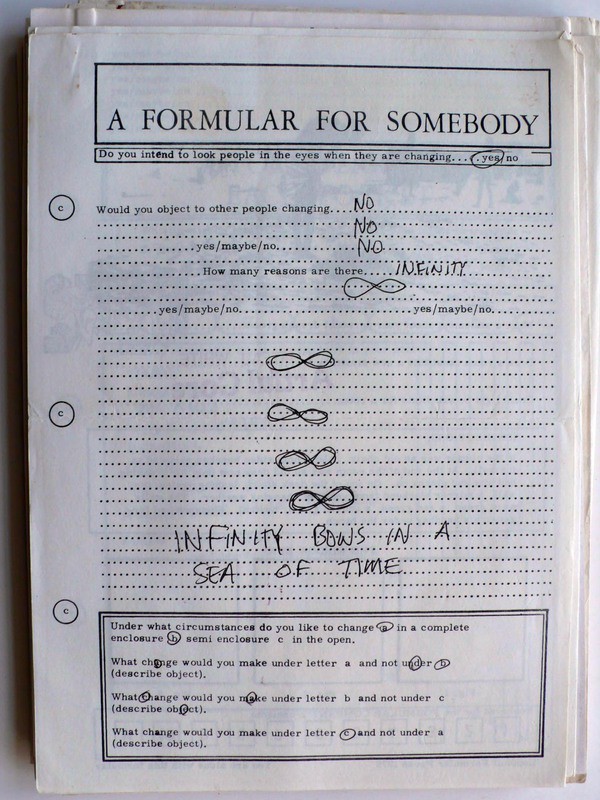 A FORMULAR FOR SOMEBODY
Do you intend to look people in the eyes when they are changing.... yes/no
c
Would you object to other people changing.... NO
NO
yes/maybe/no. NO
How many reasons are there..... INFINITY
yes/maybe/no. yes/maybe/no.
c
INFINITY BOWS IN A
SEA OF TIME
c
Under what circumstances do you like to change a in a complete
enclosure b semi enclosure c in the open.
What change would you make under letter a and not under b
(describe object).
What change would you make under letter b and not under c
(describe object).
What change would you make under letter c and not under a
(describe object).